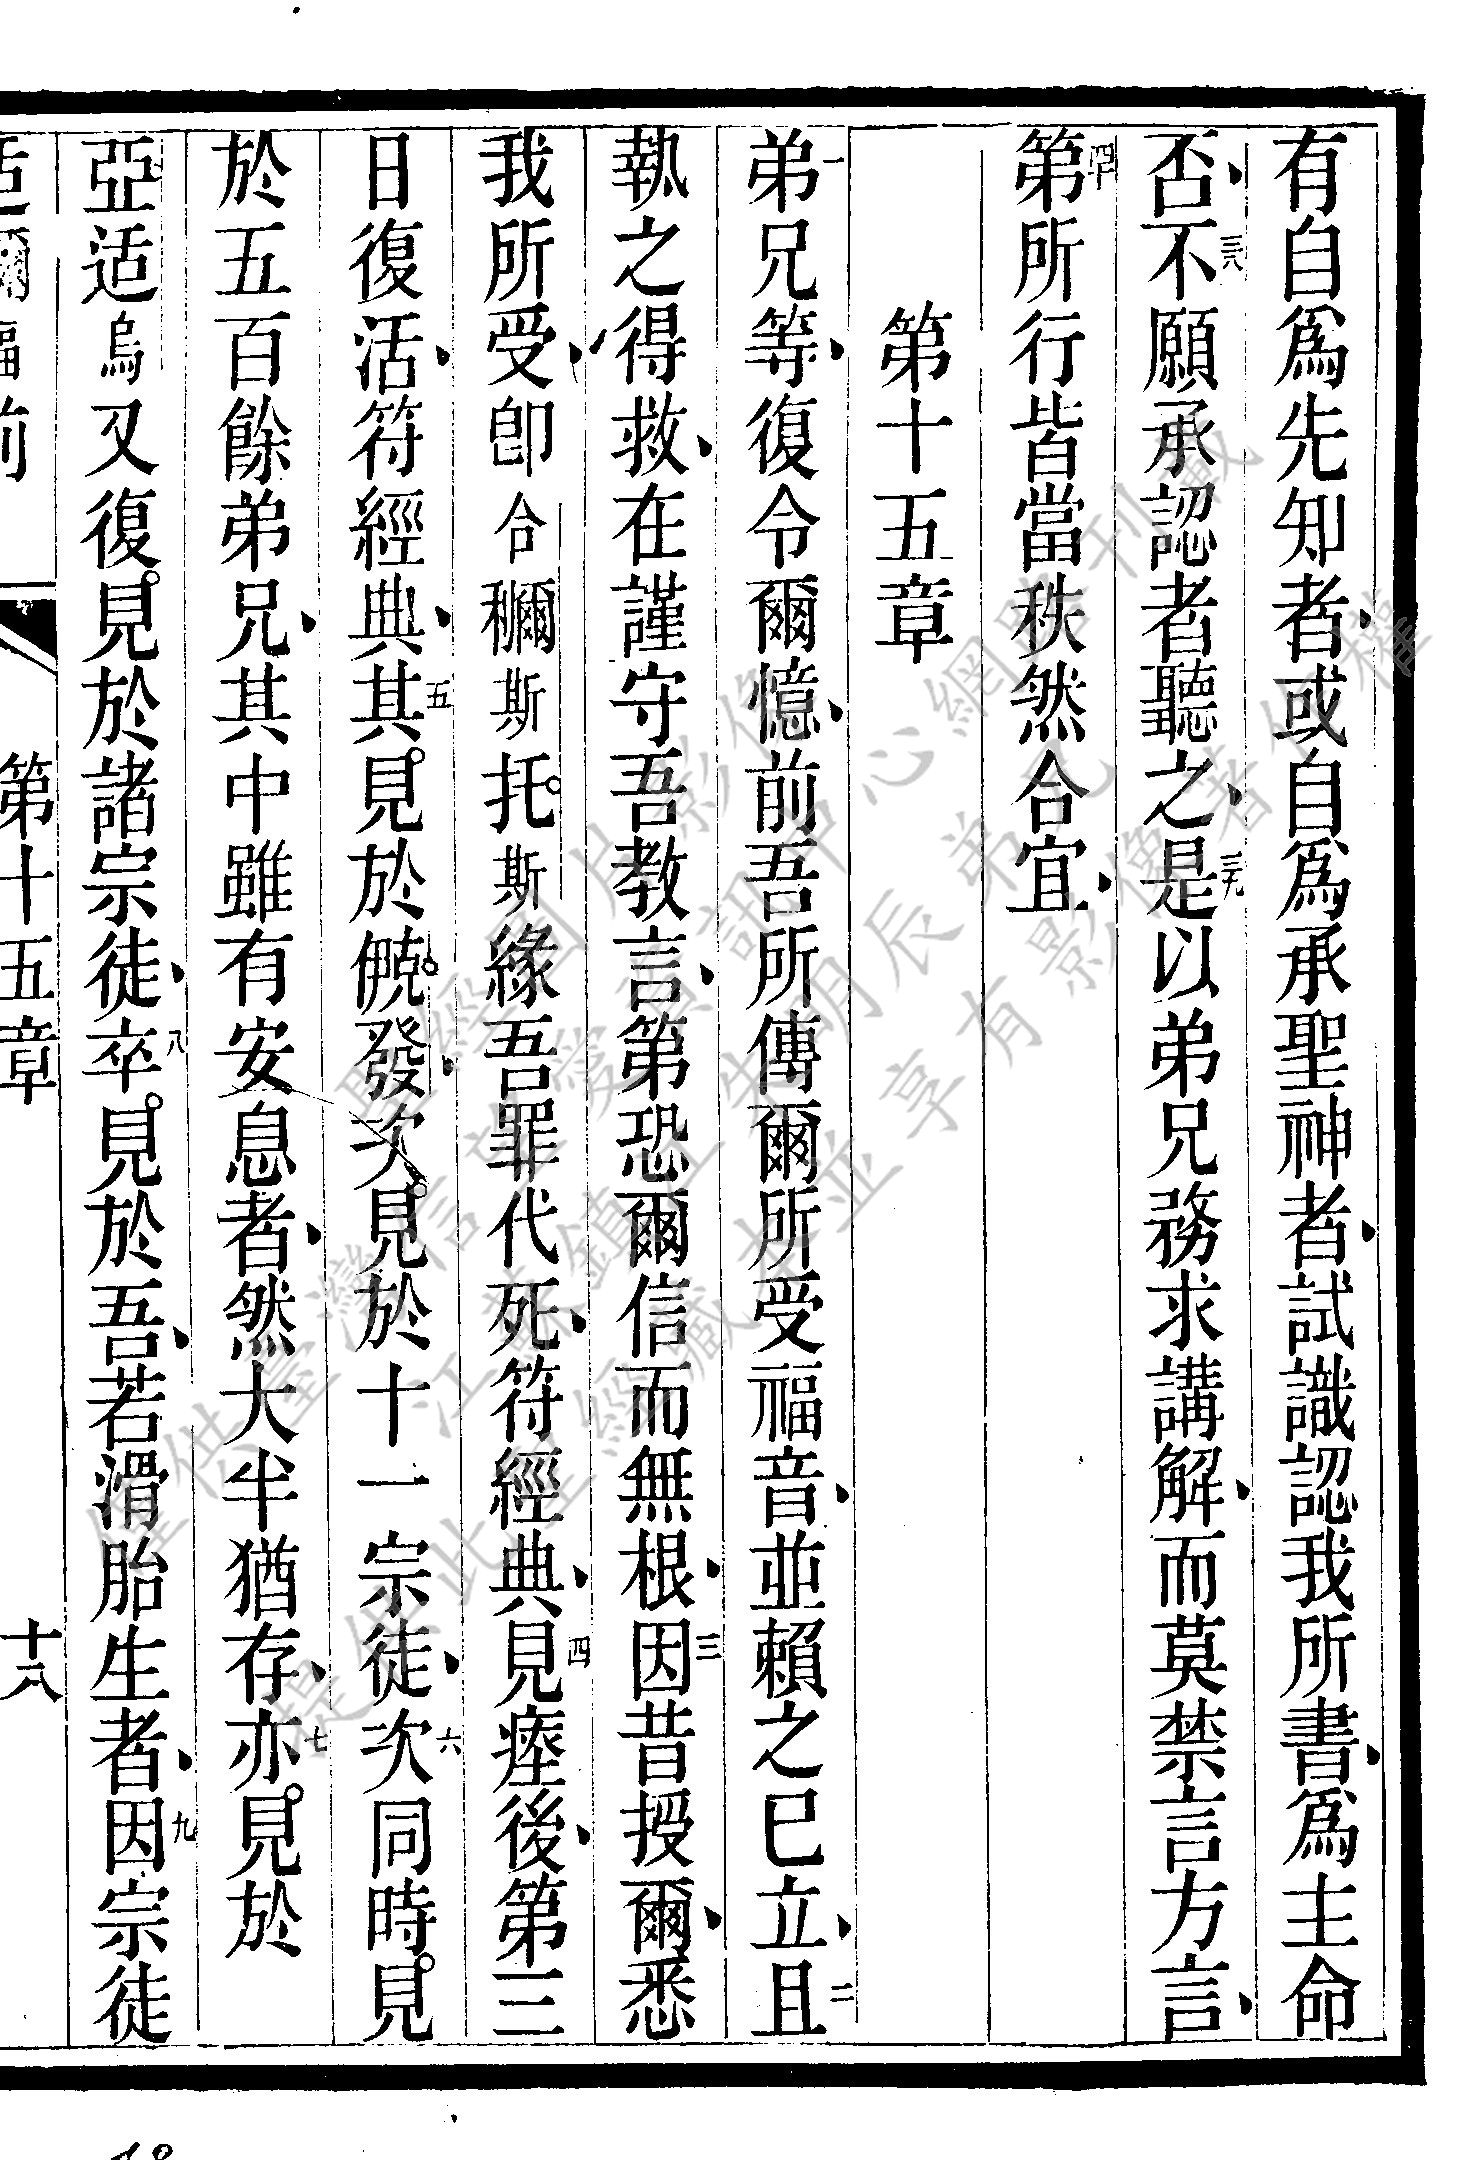 有自爲先知者、或自爲承聖神者、試識認我所書、爲主命
否、三八不願承認者聽之、三九是以弟兄務求講解、而莫禁言方言、
四十第所行皆當秩然合宜、
第十五章
一弟兄等、復令爾憶、前吾所傳爾、爾所受福音、並賴之已立、二且
執之得救、在謹守吾教言、第恐爾信而無根、三因昔授爾、悉
我所受、卽合穪斯托斯緣吾罪代死、符經典、四見瘞後、第三
日復活、符經典、五其見於𠒇發、次見於十一宗徒、六次同時見
於五百餘弟兄、其中雖有安息者、然大半猶存、七亦見於
亞适烏又復見於諸宗徒、八卒見於吾、若滑胎生者、九因宗徒
适爾福前
第十五章
十八